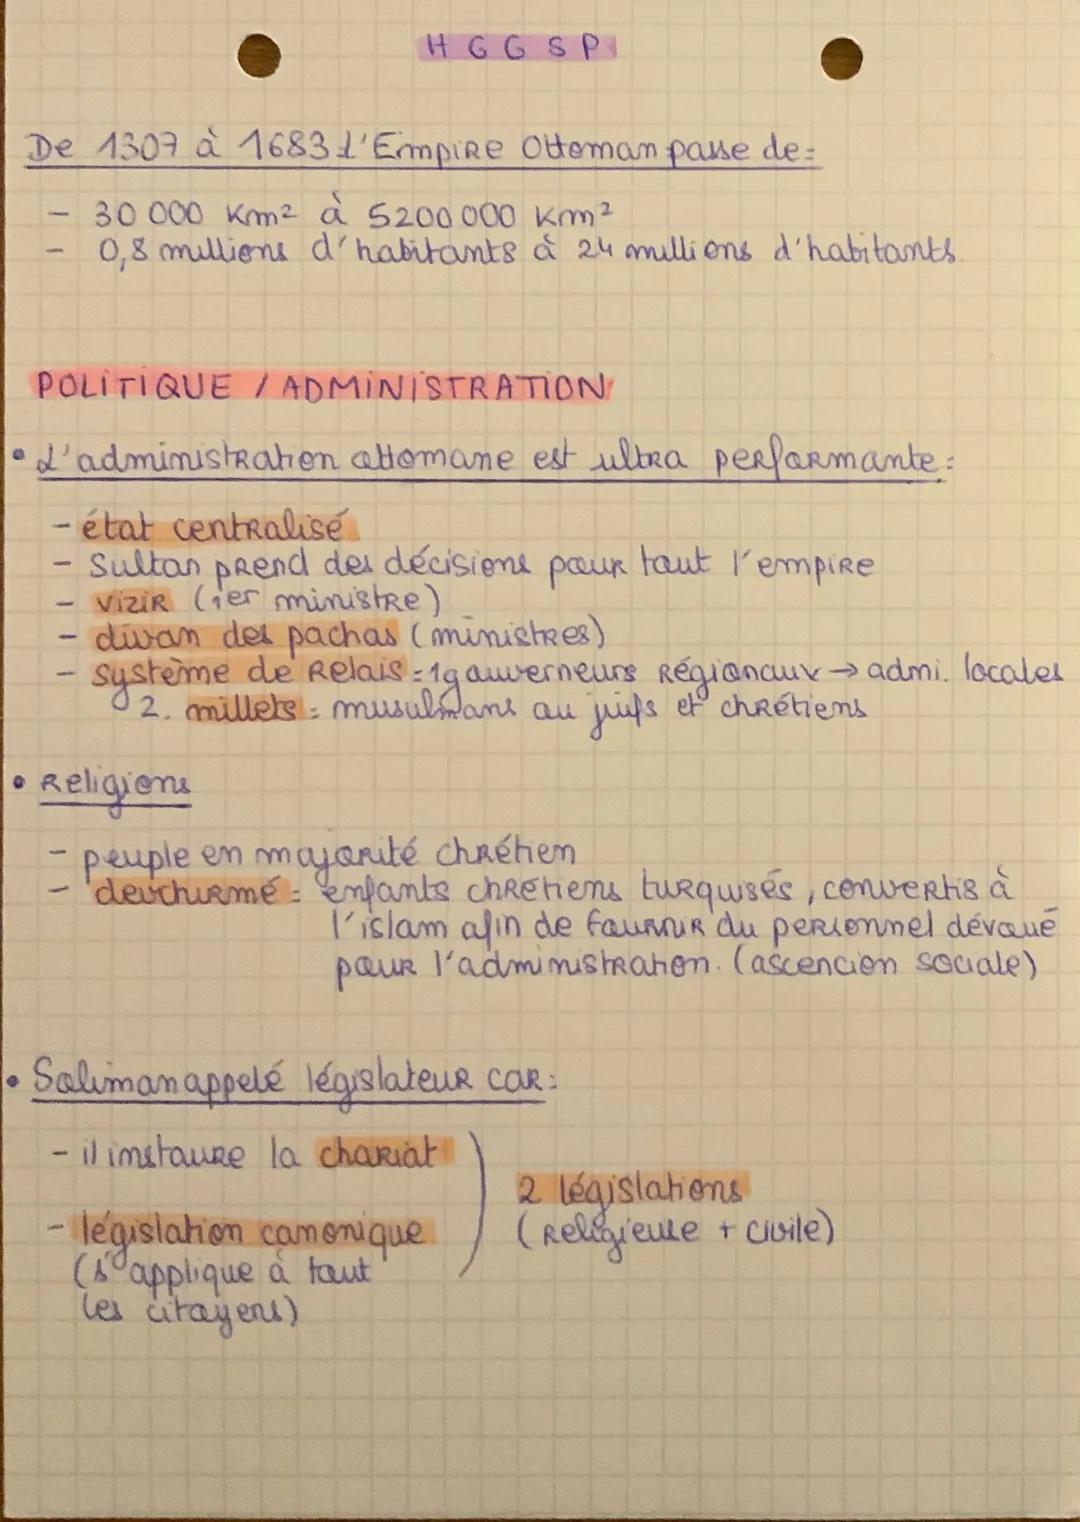 HGGSP
De 1307 à 1683 l'Empire Ottoman passe de:
- 30 000 Km² à 5200 000 Km²
- 0,8 millions d'habitants à 24 millions d'habitants.
POLITIQUE / ADMINISTRATION
• L'administration ottomane est ultra performante:
- état centralisé
- Sultan prend des décisions pour tout l'empire
- vizir (1er ministre)
- divan des pachas (ministres)
- système de relais = 1 gouverneurs régionaux → admi. locales
2. millets = musulmans ou juifs et chrétiens
• Religions
- peuple en majorité chrétien
- devchirmé = enfants chrétiens turquisés, convertis à
l'islam afin de fournir du personnel dévoué
pour l'administration. (ascencion sociale)
• Soliman appelé législateur car:
- il instaure la chariat
2 législations
- législation canonique
(religieuse + civile)
(s'applique à tout
les citoyens)